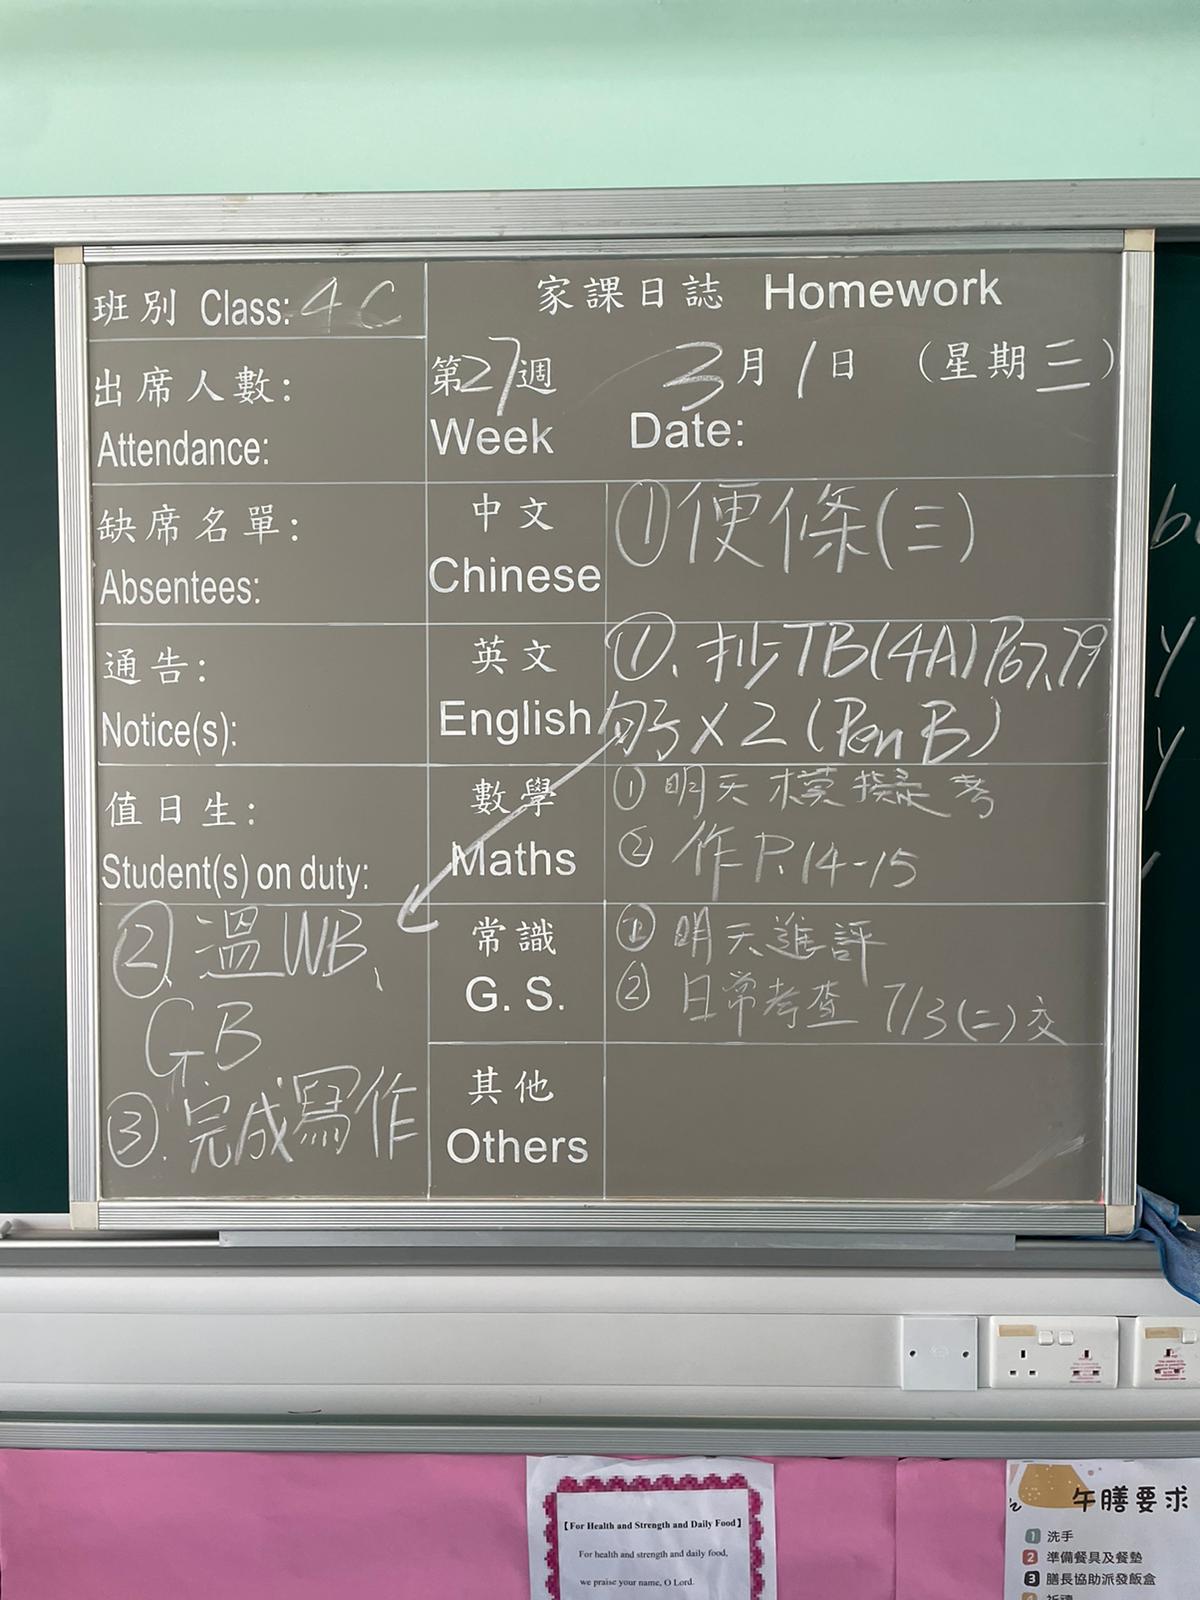 班別 Class: 4C
家課日誌 Homework
出席人數:
Attendance:
第27週 3月1日 (星期三)
Week Date:
缺席名單:
Absentees:
中文
Chinese
①便條(三)
通告:
Notice(s):
英文
English
①. 抄TB(4A)P.67、79
句子×2 (Pen B)
值日生:
Student(s) on duty:
數學
Maths
① 明天模擬考
② 作P.14-15
②. 溫WB、
GB
③. 完成寫作
常識
G. S.
① 明天進評
② 日常考查 7/3(二)交
其他
Others
【For Health and Strength and Daily Food】
For health and strength and daily food,
we praise your name, O Lord.
午膳要求
1 洗手
2 準備餐具及餐墊
3 膳長協助派發飯盒
4 祈禱